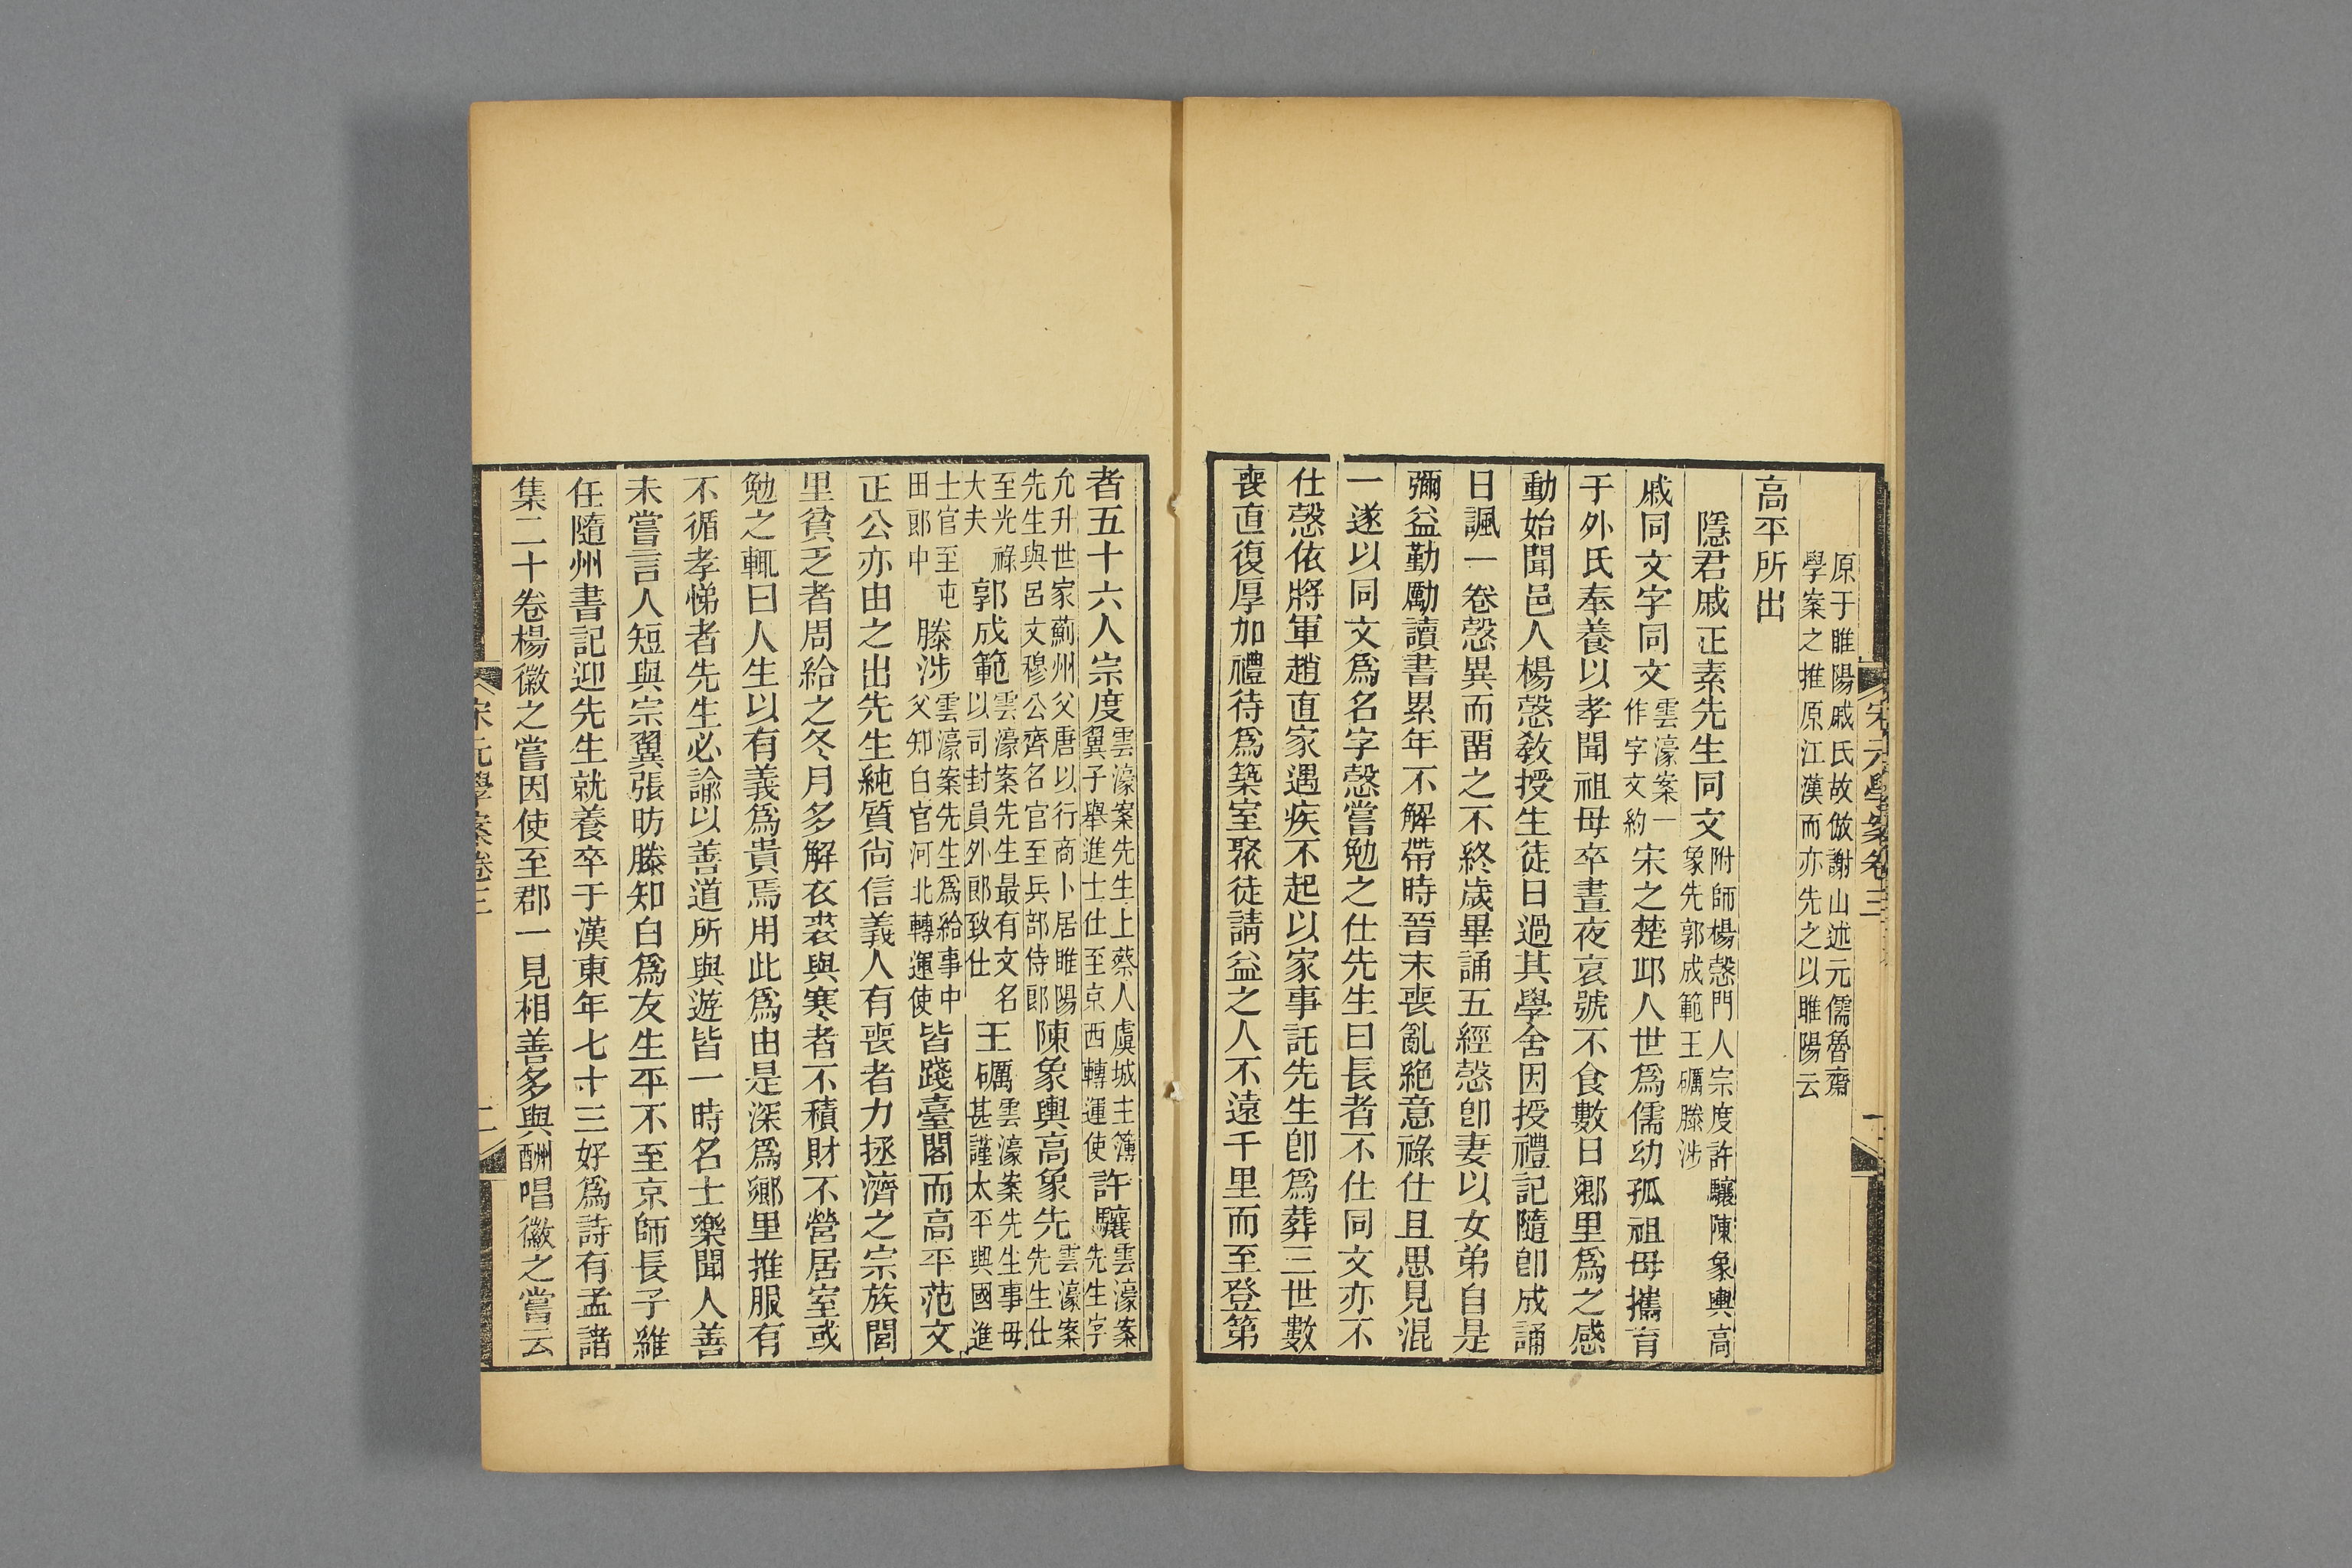 原于睢陽戚氏故倣謝山述元儒魯齋
學案之推原江漢而亦先之以睢陽云
高平所出
隱君戚正素先生同文附師楊慤門人宗度許驤陳象輿高
象先郭成範王礪滕涉
戚同文字同文雲濠案一作字文約宋之楚邱人世爲儒幼孤祖母攜育
于外氏奉養以孝聞祖母卒晝夜哀號不食數日鄉里爲之感
動始聞邑人楊慤敎授生徒日過其學舍因授禮記隨卽成誦
日諷一卷慤異而畱之不終歲畢誦五經慤卽妻以女弟自是
彌益勤勵讀書累年不解帶時晉末喪亂絶意祿仕且思見混
一遂以同文爲名字慤嘗勉之仕先生曰長者不仕同文亦不
仕慤依將軍趙直家遇疾不起以家事託先生卽爲葬三世數
喪直復厚加禮待爲築室聚徒請益之人不遠千里而至登第
宋元學案卷三
者五十六人宗度雲濠案先生上蔡人虞城主簿翼子舉進士仕至京西轉運使許驤雲濠案先生字
允升世家薊州父唐以行商卜居睢陽先生與呂文穆公齊名官至兵部侍郎陳象輿高象先雲濠案先生仕
至光祿大夫郭成範雲濠案先生最有文名以司封員外郎致仕王礪雲濠案先生事母甚謹太平興國進
士官至屯田郎中滕涉雲濠案先生爲給事中父知白官河北轉運使皆踐臺閣而高平范文
正公亦由之出先生純質尙信義人有喪者力拯濟之宗族閭
里貧乏者周給之冬月多解衣裘與寒者不積財不營居室或
勉之輒曰人生以有義爲貴焉用此爲由是深爲鄉里推服有
不循孝悌者先生必諭以善道所與遊皆一時名士樂聞人善
未嘗言人短與宗翼張昉滕知白爲友生平不至京師長子維
任隨州書記迎先生就養卒于漢東年七十三好爲詩有孟諸
集二十卷楊徽之嘗因使至郡一見相善多與酬唱徽之嘗云
宋元學案卷三
二